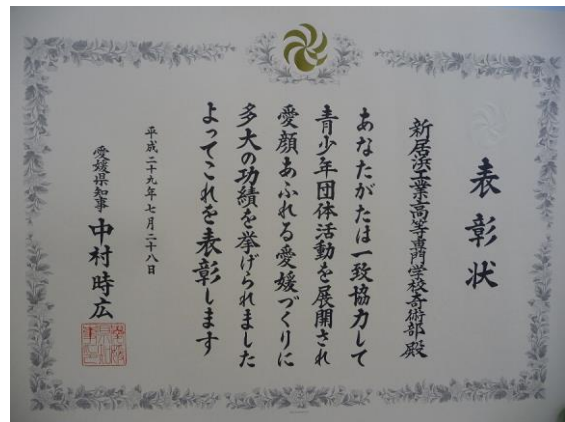 表彰状
新居浜工業高等専門学校奇術部 殿
あなたがたは一致協力して
青少年団体活動を展開され
愛顔あふれる愛媛づくりに
多大の功績を挙げられました
よってこれを表彰します
平成二十九年七月二十八日
愛媛県知事 中村時広